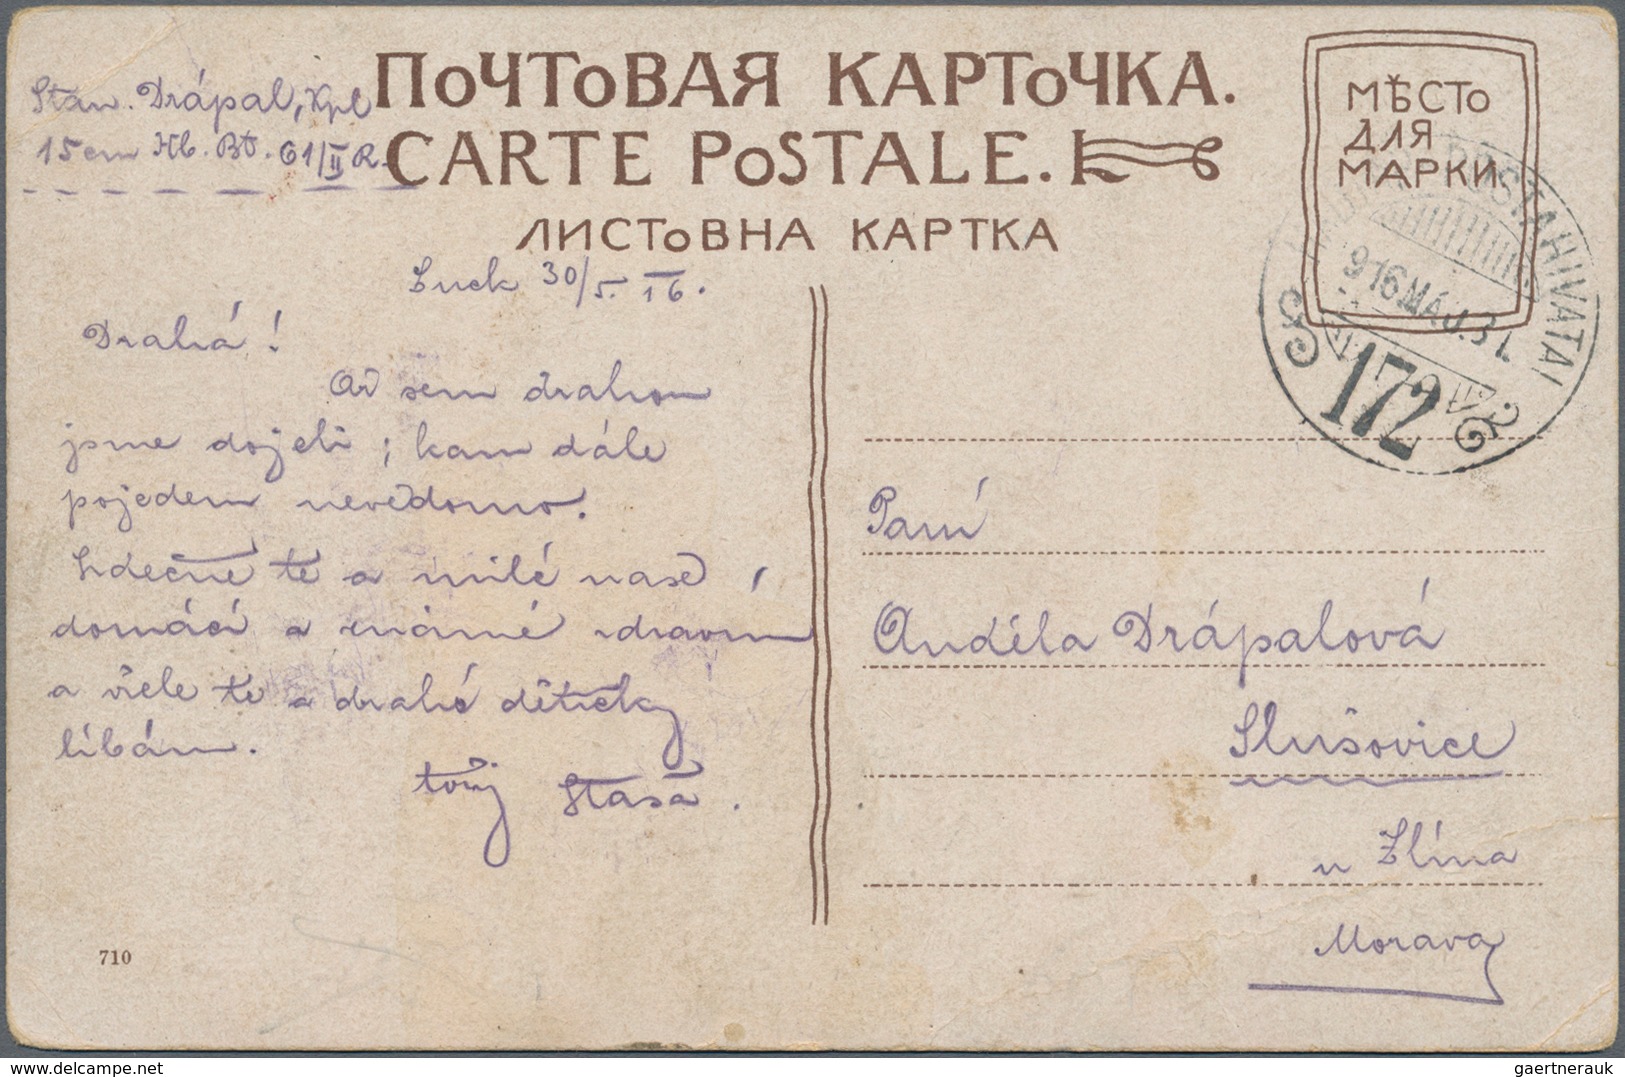 ПОЧТОВАЯ КАРТОЧКА.
CARTE POSTALE.
ЛИСТОВНА КАРТКА
МѢСТО
ДЛЯ
МАРКИ
Stan. Drápal, Kpl
15 cm Hb. Bt. 61/II R.
Luck 30/5. 16.
Drahá!
Až sem drahou
jsme dojeli; kam dále
pojedem nevědomo.
Srdečně tě a milé naše
domácí a známé zdravím
a vřele tě a drahé dítečky
líbám.
tvůj Staša.
TÁBORI POSTAHIVATAL
916 MÁJ. 31
172
Paní
Anděla Drápalová
Slušovice
u Zlína
Morava
710
delcampe.net
gaertnerauk